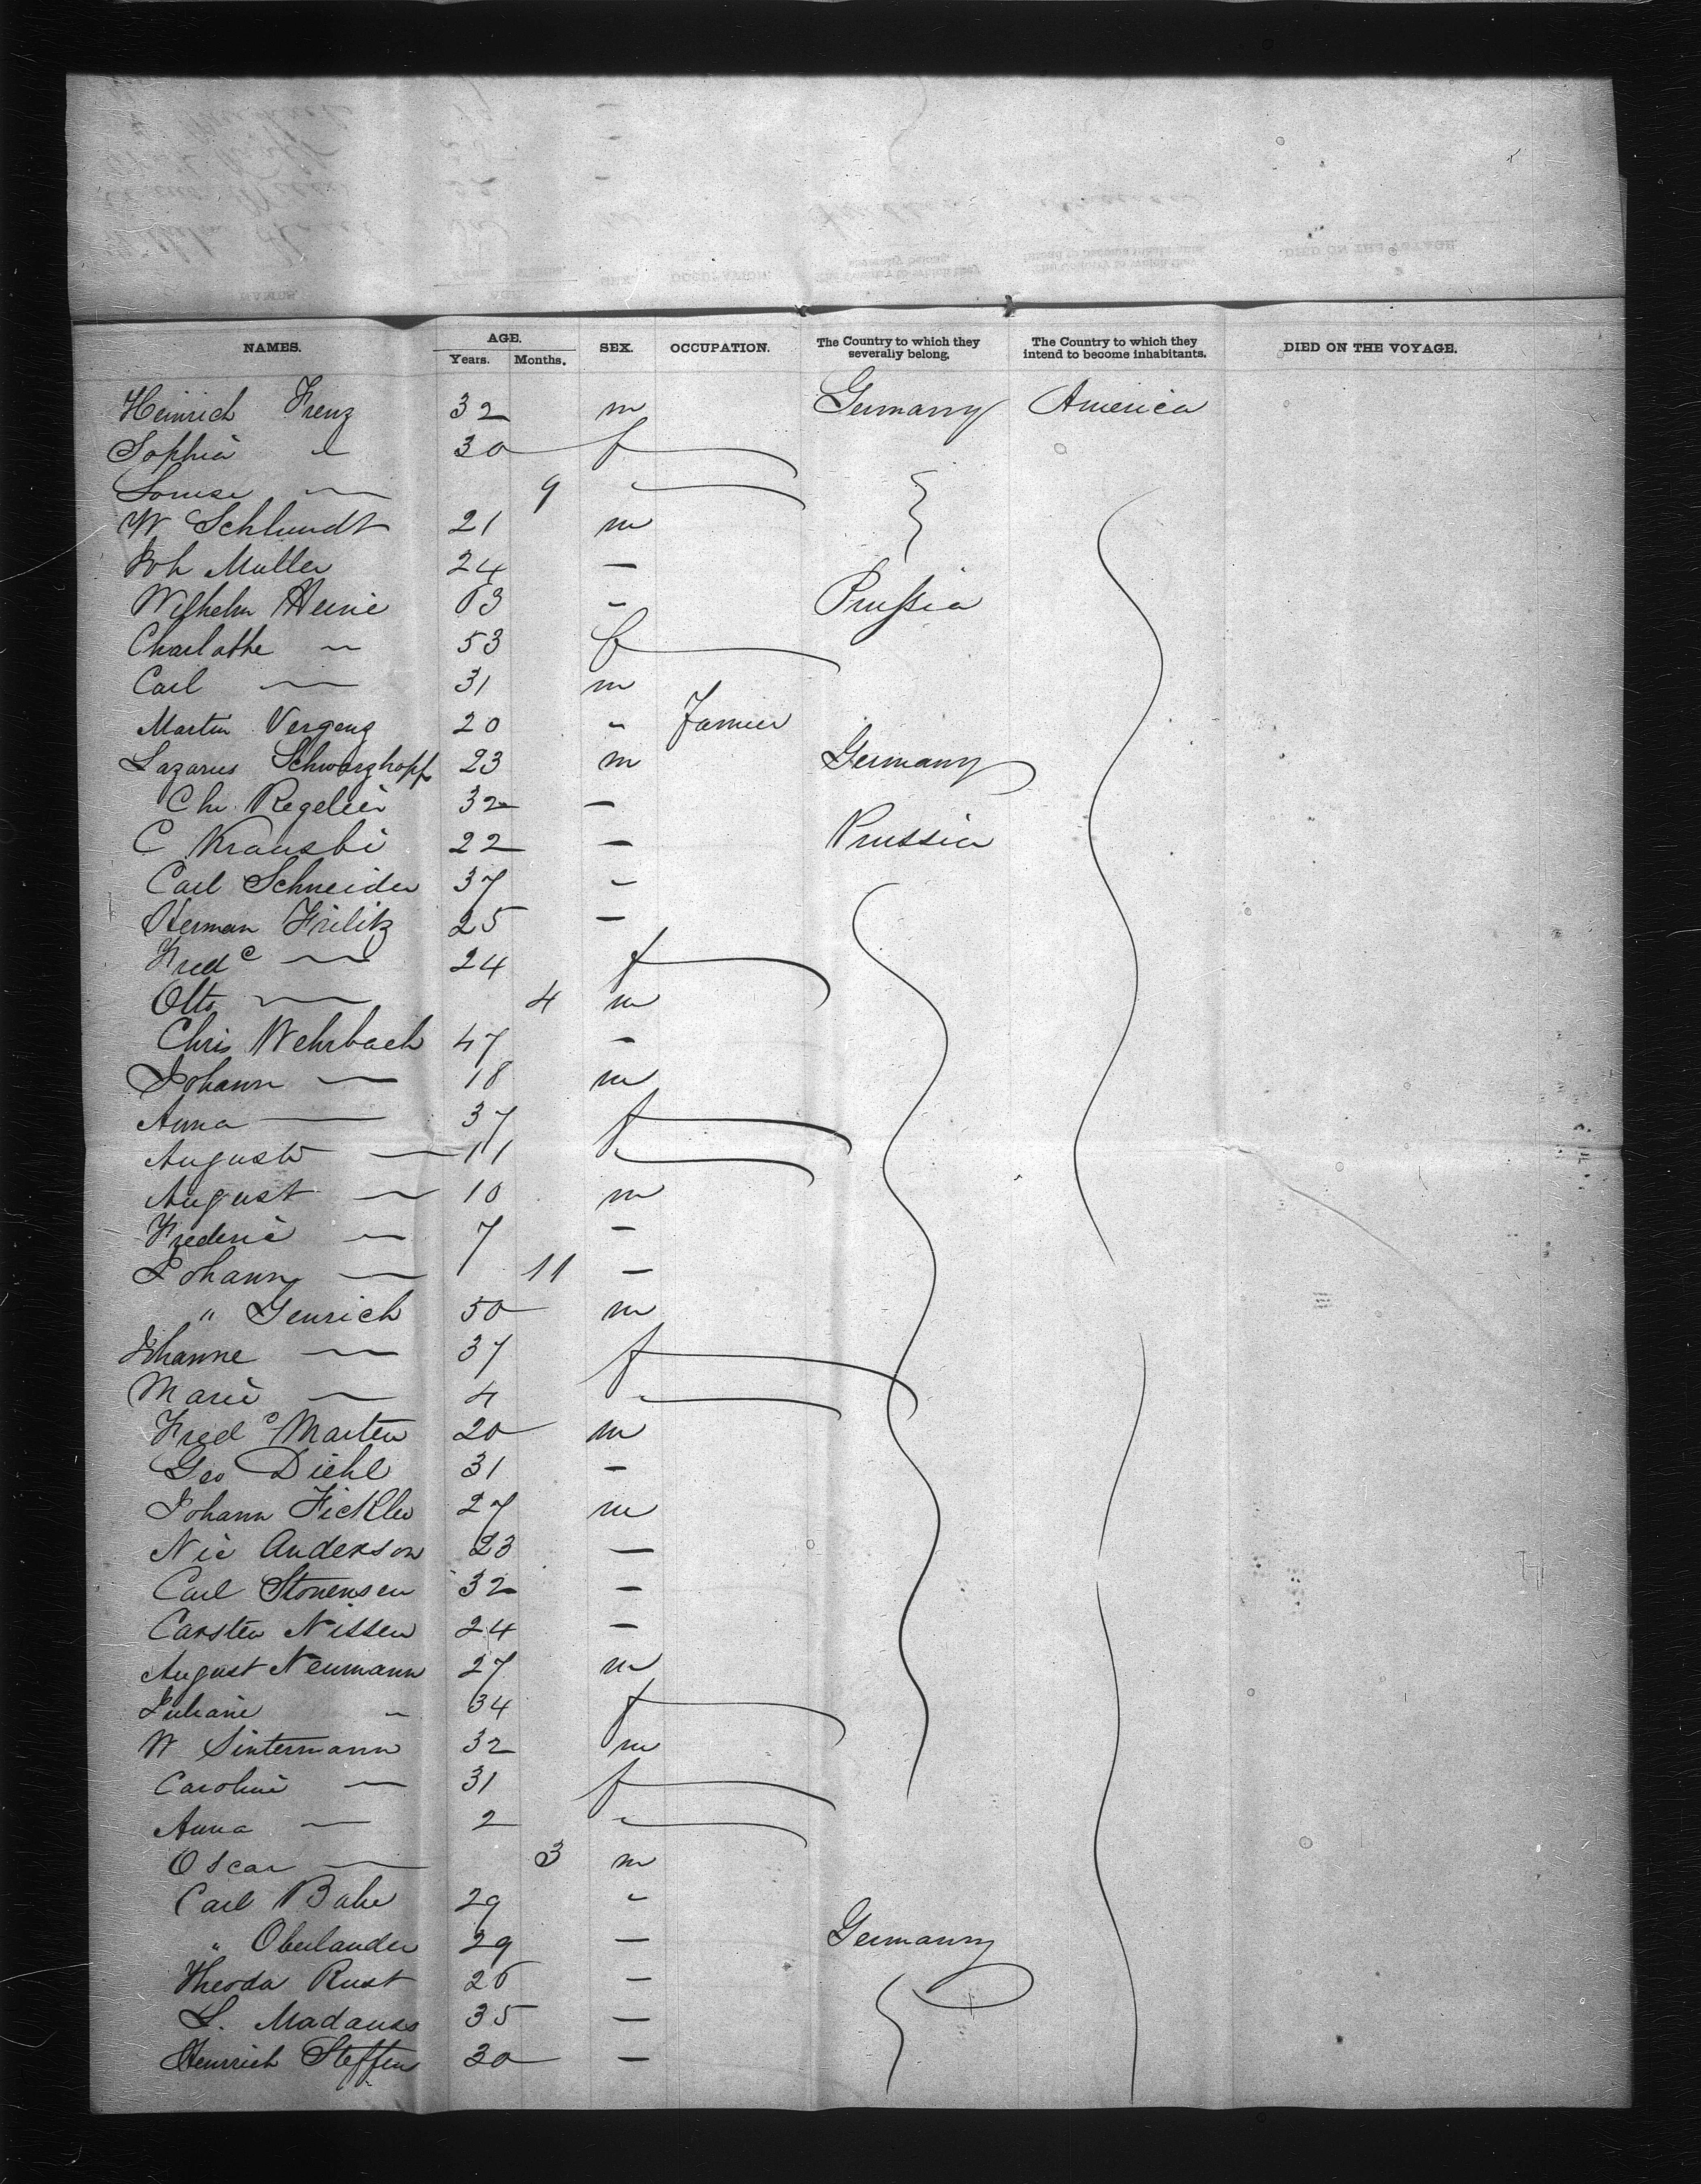 NAMES. AGE. SEX. OCCUPATION. The Country to which they severally belong. The Country to which they intend to become inhabitants. DIED ON THE VOYAGE.
Years. Months.
Heinrich Frenz 32 m Germany America
Sophia " 30 f
Louise — 9 "
W Schlundt 21 m
Joh Muller 24 —
Wilhelm Heine 63 — Prussia
Charlotte — 53 f
Carl — 31 m
Martin Vergenz 20 " Farmer
Lazarus Schwarzkopf 23 m Germany
Chr. Regelier 32 —
C Krauski 22 — Prussia
Carl Schneider 37 —
Herman Frilitz 25 —
Fredc — 24 f
Otto — 4 m
Chris Wehrbach 47 —
Johann — 18 m
Anna — 37 f
Auguste — 11 "
August — 10 m
Frederic — 7 —
Johann — 11 —
" Genrich 50 m
Johanne — 37 f
Marie — 4 "
Fredc Marten 20 m
Geo Diehl 31 —
Johann Fickler 27 m
Nic Anderson 23 —
Carl Stonensen 32 —
Carsten Nissen 24 —
August Neumann 27 m
Juliane " 34 f
W Sintermann 32 m
Caroline — 31 f
Anna — 2 "
Oscar — 3 m
Carl Bahr 29 "
" Oberlander 29 — Germany
Theodor Rust 26 —
L. Madauss 35 —
Heinrich Steffen 30 —